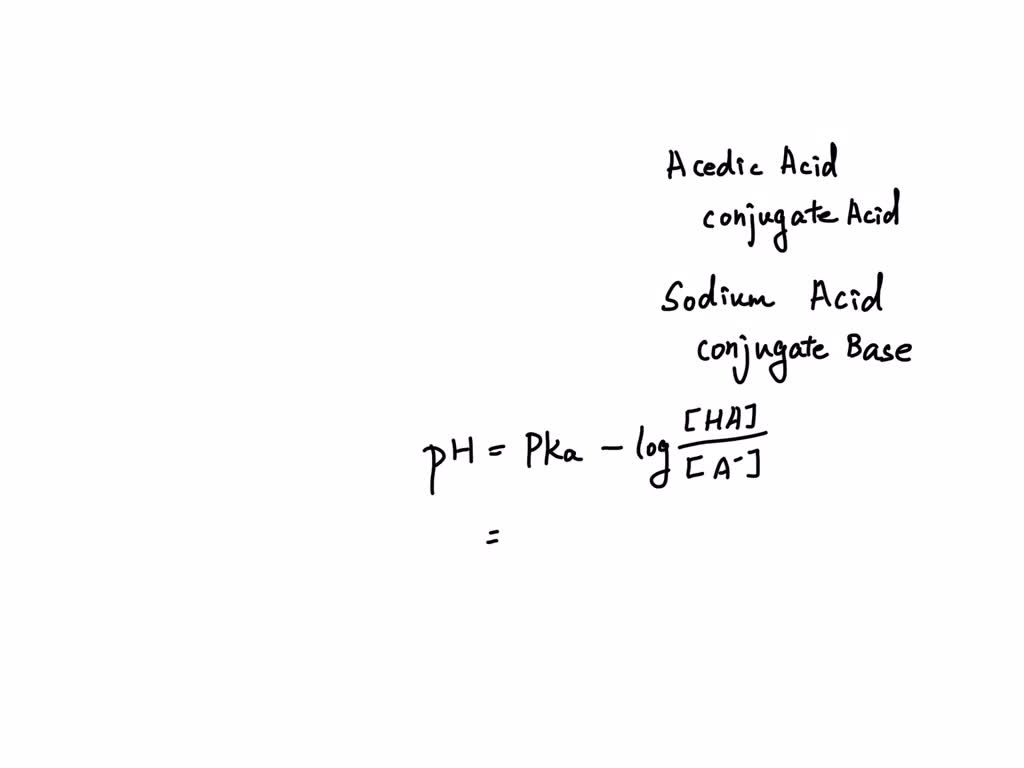 Acedic Acid
conjugate Acid
Sodium Acid
conjugate Base
pH = Pka - log [HA] / [A⁻]
=